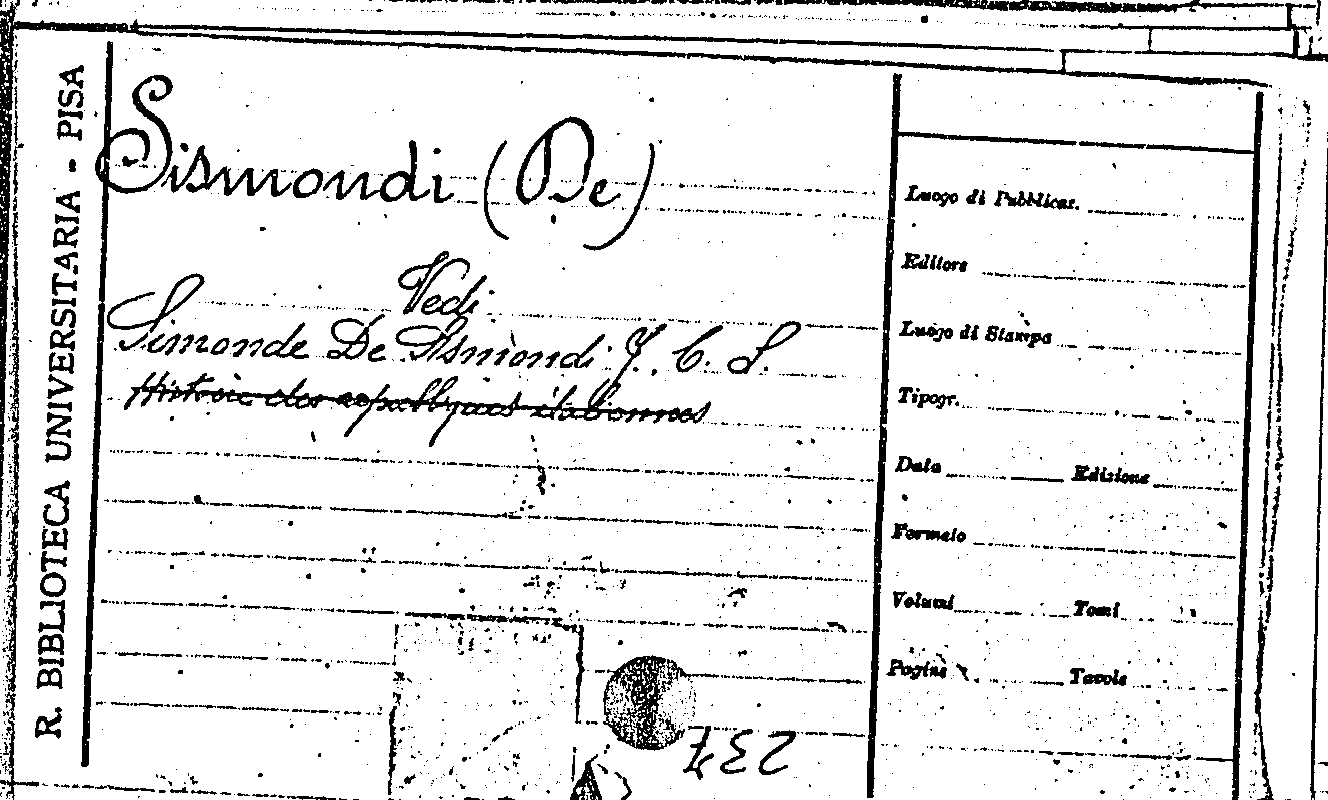 R. BIBLIOTECA UNIVERSITARIA - PISA
Sismondi (De)
Vedi
Simonde De Sismondi J. C. L.
Histoire des republiques italiennes
Luogo di Pubblicaz.
Editore
Luogo di Stampa
Tipogr.
Data Edizione
Formato
Volumi Tomi
Pagine Tavole
237